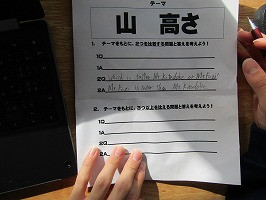 テーマ
山 高さ
1. テーマをもとに、2つを比較する問題と答えを考えよう！
1Q
1A
2Q Which is taller Mt. or Mt. Fuji?
2A Mt. Fuji is than Mt.
2. テーマをもとに、3つ以上を比べる問題と答えを考えよう！
1Q
1A
2Q
2A